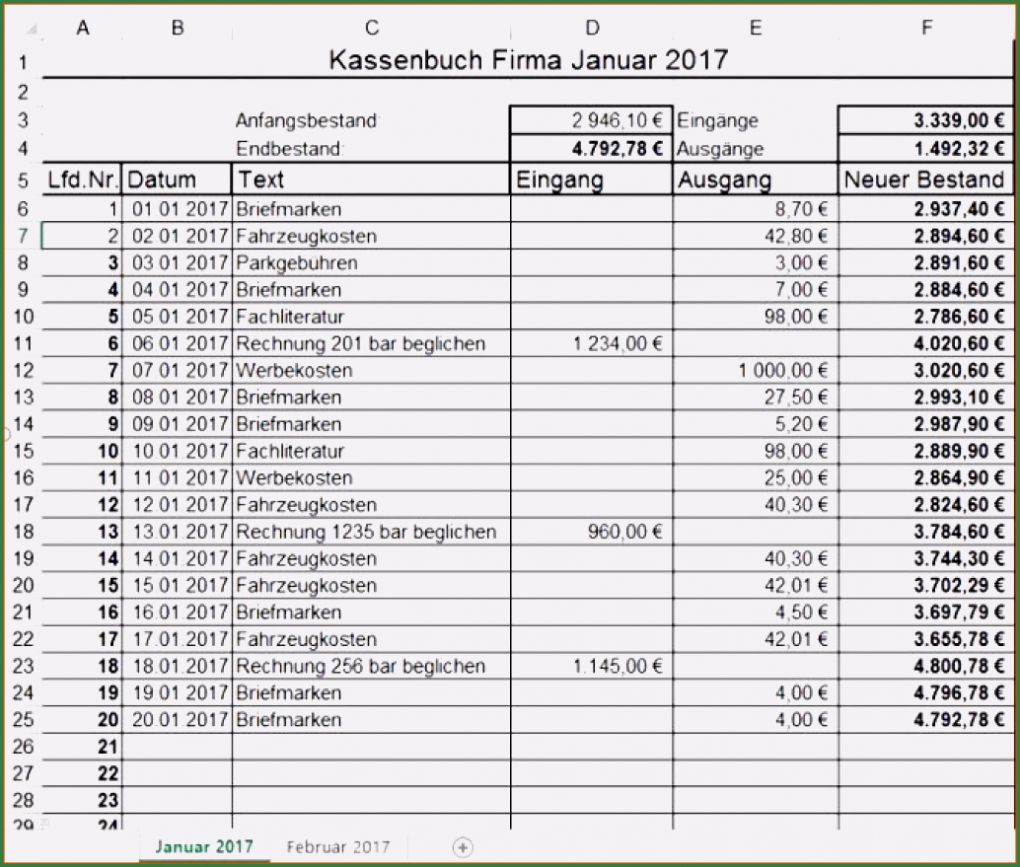 A B C D E F
1 Kassenbuch Firma Januar 2017
2
3 Anfangsbestand 2 946,10 € Eingänge 3.339,00 €
4 Endbestand: 4.792,78 € Ausgänge 1.492,32 €
5 Lfd.Nr. Datum Text Eingang Ausgang Neuer Bestand
6 1 01 01 2017 Briefmarken 8,70 € 2.937,40 €
7 2 02 01 2017 Fahrzeugkosten 42,80 € 2.894,60 €
8 3 03 01 2017 Parkgebühren 3,00 € 2.891,60 €
9 4 04 01 2017 Briefmarken 7,00 € 2.884,60 €
10 5 05 01 2017 Fachliteratur 98,00 € 2.786,60 €
11 6 06 01 2017 Rechnung 201 bar beglichen 1 234,00 € 4.020,60 €
12 7 07 01 2017 Werbekosten 1 000,00 € 3.020,60 €
13 8 08 01 2017 Briefmarken 27,50 € 2.993,10 €
14 9 09 01 2017 Briefmarken 5,20 € 2.987,90 €
15 10 10 01 2017 Fachliteratur 98,00 € 2.889,90 €
16 11 11 01 2017 Werbekosten 25,00 € 2.864,90 €
17 12 12 01 2017 Fahrzeugkosten 40,30 € 2.824,60 €
18 13 13.01 2017 Rechnung 1235 bar beglichen 960,00 € 3.784,60 €
19 14 14.01 2017 Fahrzeugkosten 40,30 € 3.744,30 €
20 15 15 01 2017 Fahrzeugkosten 42,01 € 3.702,29 €
21 16 16.01 2017 Briefmarken 4,50 € 3.697,79 €
22 17 17.01 2017 Fahrzeugkosten 42,01 € 3.655,78 €
23 18 18.01 2017 Rechnung 256 bar beglichen 1.145,00 € 4.800,78 €
24 19 19 01 2017 Briefmarken 4,00 € 4.796,78 €
25 20 20.01 2017 Briefmarken 4,00 € 4.792,78 €
26 21
27 22
28 23
29 24
Januar 2017 Februar 2017